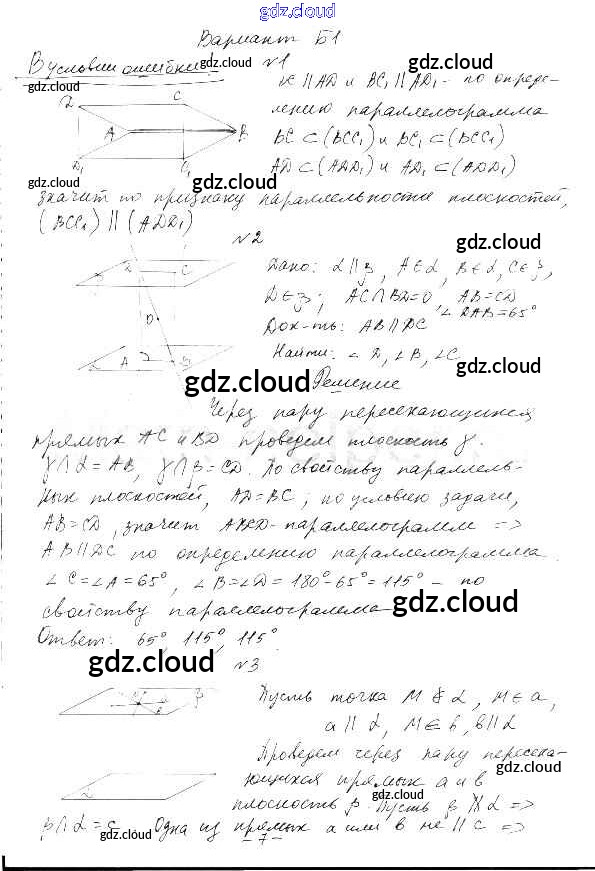 gdz.cloud
Вариант Б1
В условии ошибки
gdz.cloud
№1
gdz.cloud
BC || AD и BC₁ || AD₁ - по опреде-
лению параллелограмма
gdz.cloud
BC ⊂ (BCC₁) и BC₁ ⊂ (BCC₁)
AD ⊂ (ADD₁) и AD₁ ⊂ (ADD₁)
D C A B D₁ C₁
gdz.cloud
gdz.cloud
gdz.cloud
значит по признаку параллельности плоскостей,
(BCC₁) || (ADD₁)
№2
gdz.cloud
Дано: α || β, A ∈ α, B ∈ α, C ∈ β,
D ∈ β; AC ∩ BD = O, AB = CD
∠DAB = 65°
gdz.cloud
Док-ть: AB || DC
Найти: ∠D, ∠B, ∠C
gdz.cloud
gdz.cloud
Решение
Через пару пересекающихся
прямых AC и BD проведем плоскость γ.
γ ∩ α = AB, γ ∩ β = CD. По свойству параллель-
ных плоскостей, AD = BC; по условию задачи,
AB = CD, значит ABCD - параллелограмм =>
AB || DC по определению параллелограмма.
∠C = ∠A = 65°, ∠B = ∠D = 180° - 65° = 115° - по
свойству параллелограмма
gdz.cloud
Ответ: 65°, 115°, 115°.
gdz.cloud
№3
Пусть точка M ∉ α, M ∈ a,
a || α, M ∈ b, b || α
Проведем через пару пересека-
gdz.cloud
ющихся прямых a и b
плоскость β. Пусть β ∦ α =>
gdz.cloud
β ∩ α = c. Одна из прямых a или b не || c =>
gdz.cloud
gdz.cloud
- 7 -
gdz.cloud